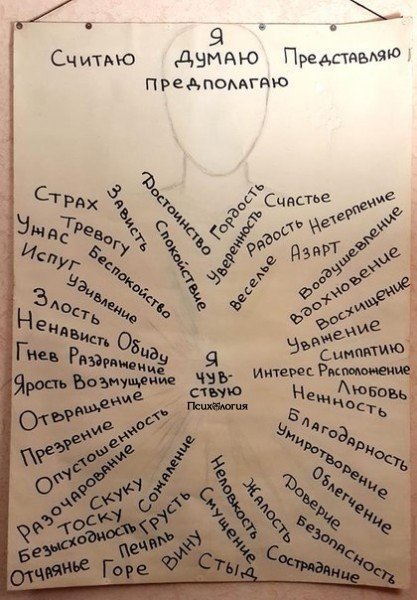 Я
Считаю Думаю Представляю
предполагаю
Достоинство
Гордость
Счастье
Страх
Зависть
Спокойствие
Уверенность
Радость
Нетерпение
Ужас
Тревогу
Веселье
Азарт
Испуг
Беспокойство
Воодушевление
Удивление
Вдохновение
Злость
Восхищение
Ненависть Обиду
Уважение
Гнев Раздражение
Я
Симпатию
Ярость Возмущение
чув-
ствую
Интерес Расположение
Психология
Любовь
Отвращение
Нежность
Презрение
Благодарность
Опустошенность
Умиротворение
Разочарование
Облегчение
Скуку
Сожаление
Неловкость
Жалость
Доверие
Тоску
Грусть
Смущение
Безопасность
Безысходность
Печаль
Вину
Стыд
Сострадание
Отчаянье
Горе